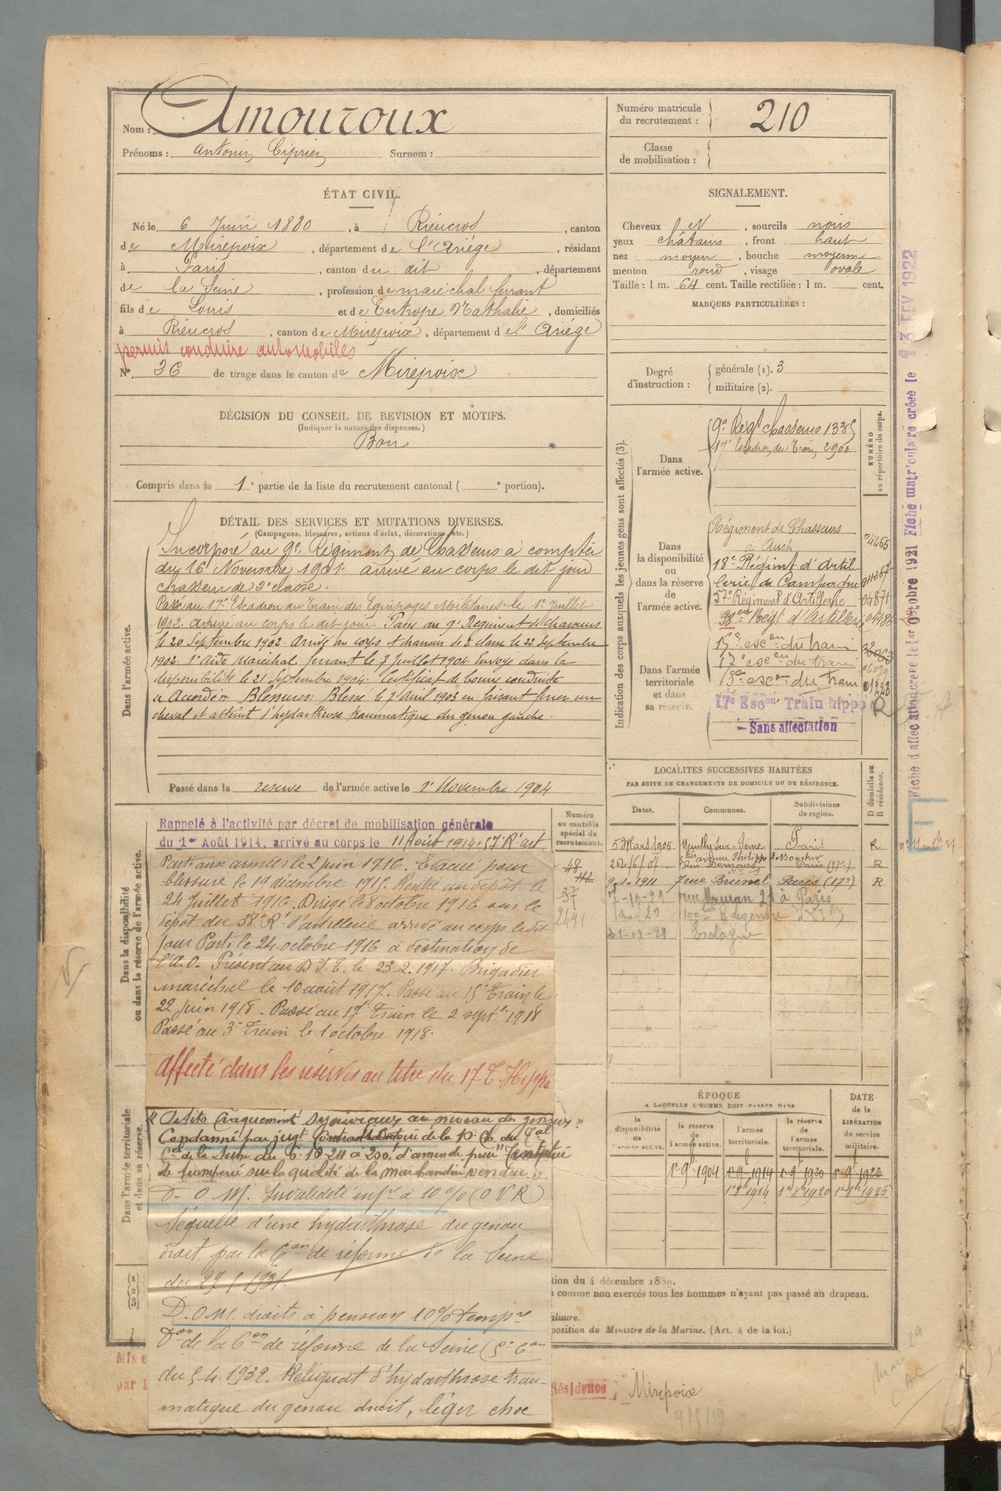 Nom : Amouroux
Prénoms : Antonin, Ciprien, Surnom :
Numéro matricule du recrutement : 210
Classe de mobilisation :
ÉTAT CIVIL.
Né le 6 Juin 1880, à Rieucros, canton
de Mirepoix, département de l'Ariége, résidant
à Paris, canton du dit, département
de la Seine, profession de maréchal ferrant
fils de Louis et de Eutrope Nathalie, domiciliés
à Rieucros, canton de Mirepoix, départem t de l'Ariége
permis conduire automobiles
N° 36 de tirage dans le canton de Mirepoix
SIGNALEMENT.
Cheveux N, sourcils noirs
yeux châtains, front haut
nez moyen, bouche moyenne
menton rond, visage ovale
Taille : 1 m. 64 cent. Taille rectifiée : 1 m. cent.
MARQUES PARTICULIÈRES :
Degré d'instruction : générale (1). 3
militaire (2).
DÉCISION DU CONSEIL DE REVISION ET MOTIFS.
(Indiquer la nature des dispenses.)
Bon
Compris dans la 1e partie de la liste du recrutement cantonal ( e portion).
DÉTAIL DES SERVICES ET MUTATIONS DIVERSES.
(Campagnes, blessures, actions d'éclat, décorations, etc.)
Dans l'armée active.
Incorporé au 9e Régiment de Chasseurs à compter
du 16 Novembre 1901. arrivé au corps le dit jour
chasseur de 2e classe.
Passé au 17e Escadron du train des Equipages Militaires le 1er Juillet
1902. arrivé au corps le dit jour. Passé au 9e Régiment de Chasseurs
le 20 Septembre 1902. Arrivé au corps et chasseur de 2e classe le 22 septembre
1902. 1er Aide Maréchal ferrant le 7 juillet 1904. Envoyé dans la
disponibilité le 21 Septembre 1904. Certificat de bonne conduite
"Accordé". Blessures. Blessé le 7 avril 1903 en faisant ferrer un
cheval et atteint d'hydarthrose traumatique du genou gauche.
Passé dans la réserve de l'armée active le 1er Novembre 1904
Indication des corps auxquels les jeunes gens sont affectés (3).
NUMÉRO au répertoire du corps.
Dans l'armée active.
9e Régt Chasseurs 1335
17e Escadron du Train, 2900
Dans la disponibilité ou dans la réserve de l'armée active.
Régiment de Chasseurs
à Auch
18e Régimt d'Artil
lerie de Campagne
57e Régiment d'Artillerie
58e Régt d'Artillerie
Dans l'armée territoriale et dans sa réserve.
15e escon du train
17e escon du train
13e escon du train
17e Escon Train hippo
— Sans affectation
Fiche d'affectation créée le 1er Octobre 1921 Fiche matriculaire créée le 3 FEV 1922
LOCALITÉS SUCCESSIVES HABITÉES
PAR SUITE DE CHANGEMENTS DE DOMICILE OU DE RÉSIDENCE.
Dates. Communes. Subdivisions de region. D domicile ou R résidence.
5 Mars 1905 Neuilly sur Seine Paris R
R
9-2-1911 7 rue Brunel Paris (17e) R
21 à Paris
Dans la disponibilité ou dans la réserve de l'armée active.
Numéro au contrôle spécial du recrutement.
Rappelé à l'activité par décret de mobilisation générale
du 1er Août 1914, arrivé au corps le 11 Août 1914. 57 Rt art
Parti aux armées le 2 juin 1916. Evacué pour
blessure le 19 décembre 1915. Rentré au dépôt le
24 Juillet 1916. Dirigé le 8 octobre 1916 sur le
dépôt du 58e Rt d'artillerie arrivé au corps le dit
Jour. Parti le 24 octobre 1916 à destination de
l'A.O. Présent au D.I.E. le 23.2.1917. Brigadier
maréchal le 10 août 1917. Passé au 15 Train le
22 Juin 1918 - Passé au 17e Train le 2 septe 1918
Passé au 3e Train le 1 octobre 1918.
48
37
2491
Affecté dans les réserves au titre du 17. E. Hippo
Dans l'armée territoriale et dans sa réserve.
"Petits craquements synoviaux au niveau des genoux"
Condamné par jugt Contradictoire de la 10e Ch. du Tal
Cel de la Seine du 6-10-24 à 200f d'amende pour "
de tromperie sur la qualité de la marchandise vendue."
D. O. M. Invalidité infre à 10% (O V R)
Séquelle d'une hydarthrose du genou
droit par la Con de réforme de la Seine
du 29.5.1931
D.O.M. droits à pension 10% tempre
Don de la Con de réforme de la Seine (5e Con
du 5.4.1932. Reliquat d'hydarthrose trau-
matique du genou droit, léger choc
ÉPOQUE
À LAQUELLE L'HOMME DOIT PASSER DANS
la disponibilité de l'armée active. la réserve de l'armée active. l'armée territoriale. la réserve de l'armée territoriale.
DATE de la LIBÉRATION du service militaire.
1er 9e 1904 1er 9e 1914 1er 9e 1920 1er 9e 1926
1er 8e 1914
tion du 4 décembre 1889.
comme non exercés tous les hommes n'ayant pas passé au drapeau.
position du Ministre de la Marine. (Art. 4 de la loi.)
Mis e
par l
Résidence
Mirepoix
9/5/19